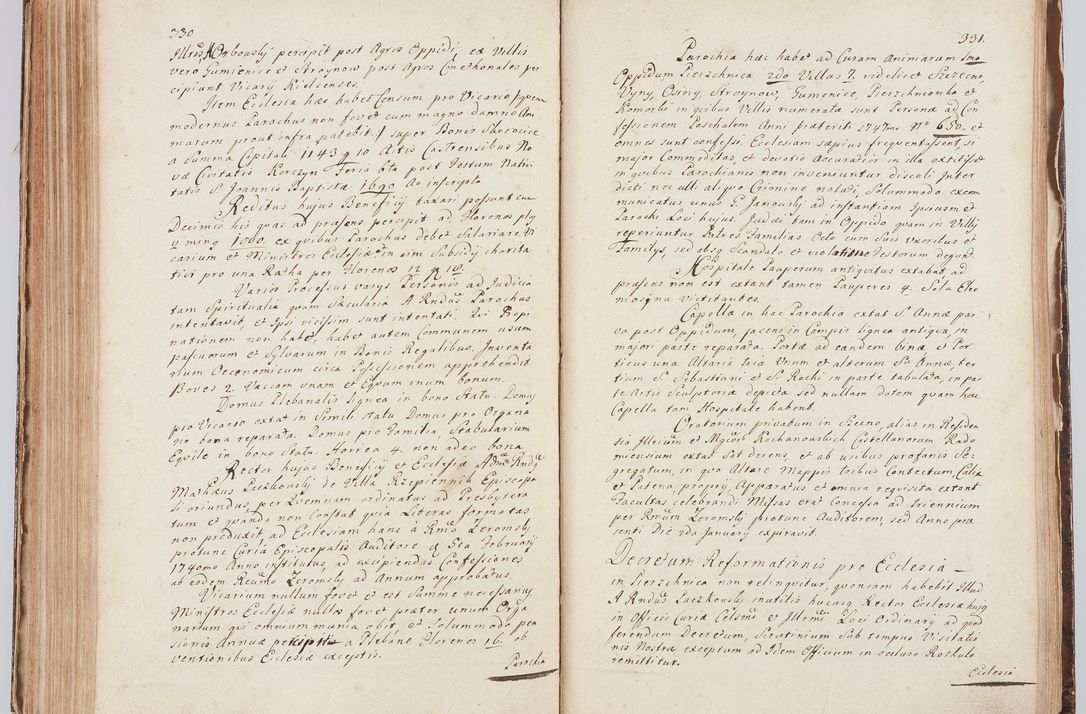 330
Illris Orbouskj percipit post Agros Oppidi, ex Villis
vero Gumienice et Stroynow post Agros Cmethonales per
cipiunt Vicarij Kielcenses.
Item Ecclesia hæc habet Censum pro Vicario, quem
modernus Parochus non fovet cum magno damno Ani
marum prout infra patebit, super Bonis Skorocice
a Summa Capitali 1143 q 10 Actis Castrensibus No
væ Civitatis Korczyn Feria 6ta post Festum Nativi
tatis S. Joannis Baptistæ 1690 Ao inscripta
Reditus hujus Beneficij taxari possunt cum
Decimis his quas ad præsens percipit ad florenos plu
q ming 1000. ex quibus Parochus debet Salariare Vi
carium et Ministros Ecclesiæ in vim Subsidij charita
tivi pro una Ratha per florenos 12 q 10
Varios Processus varys Personis ad Judicia
tam Spiritualia quam Sæcularia A Rndus Parochus
intentavit, et Ipsi vicissim sunt intentati. Jus Propi
nationem non habet, habet autem Communem usum
pascuorum et Sylvarum in Bonis Regalibus. Inventa
rium Oeconomicum circa Possessionem apprehendit
Boves 2. Vaccam unam et Equum unum bonum.
Domus Plebanalis lignea in bono Statu. Domus
pro Vicario extat in Simili Statu. Domus pro Organa
rio bona reparata. Domus pro Familia, Stabularium
Equile in bono Statu. Horrea 4. non adeo bona
Rector hujus Beneficij et Ecclesiæ Admr Rndus
Mathæus Paczkouskj de Villa Rzepiennik Episcopa
li oriundus, per Quemnam ordinatus ad Presbytera
tum et quando non Constat quia Literas formatas
non produxit ad Ecclesiam hanc a Rmo Zeromskj
protunc Curiæ Episcopalis Auditore q 5ta Februarij
1740mo Anno institutus, ad excipiendas Confessiones
ab eodem Reumo Zeromskj ad Annum approbatus.
Vicarium nullum fovet et est Summe necessarius
Ministros Ecclesiæ nullos fovet præter unum Orga
narium qui omnium munia obit, et Solummodo pen
sionis Annuæ percipit a Plebano florenos 16. ob
ventionibus Ecclesiæ exceptis.
Parochia
331.
Parochia hæc habet ad Curam Animarum 1mo
Oppidum Pierzchnica 2do Villas 7. videlicet Szczecno,
Vyny, Osiny, Stroynow, Gumenice, Pierzchnionka et
Komorki in quibus Villis numeratæ sunt Personæ ad Con
fessionem Paschalem Anni præteriti 1747mi No 650. et
omnes sunt confessi. Ecclesiam sæpius frequentassent, si
major Commoditas, et devotio Accuratior in illa extitisset
in quibus Parochianis non inveniuntur discoli Inter
dicti nec ulli aliquo Crimine notati, Solummodo excom
municatus unus G. Janouskj ad instantiam Ipsiusmet
Parochi Loci hujus. Judæi tam in Oppido quam in Villis
reperiuntur Patres Familias Octo cum Suis uxoribus et
Familijs, sed absq Scandalo et violatione Festorum degunt.
Hospitale Pauperum antiquitus extabat, ad
præsens non est extant tamen Pauperes 4. Sola Elee
mosyna victitantes.
Capella in hac Parochia extat S. Annæ par
va post Oppidum, jacens in Campis lignea antiqua, in
majori parte reparata. Portæ ad eandem binæ et Por
ticus una Altaria tria Unum et alterum S. Annæ, ter
tium S. Sebastiani et S. Rochi in parte tabulata, in par
te Artis Sculptoriæ depicta sed nullam dotem quam hæc
Capella tam Hospitale habent.
Oratorium privatum in Szecno, alias in Residen
tia Illrium et Mgcor Kochanouskich Castellanorum Rado
miensium extat Sat decens, et ab usibus profanis Se
gregatum, in quo Altare Mappis tribus Contectum Calix
et Patena, proprij Apparatus et omnia requisita extant
Facultas celebrandi Missas erat Concessa ad triennium
per Rmum Zeromskj protunc Auditorem sed Anno præ
senti Die 2da January expiravit.
Decretum Reformationis pro Ecclesia
in Pierzchnica non relinquitur, quoniam habebit Illud
A Rndus Paczkouskj inutilis hucusq Rector Ecclesiæ hujq
in Officio Curiæ Celsmi et Illrmi Loci Ordinarij ad quod
ferendum Decretum, Scrutinium Sub tempus Visitatio
nis Nostræ exceptum ad Idem Officium in occluso Rothulo
remittitur.
Ecclesia